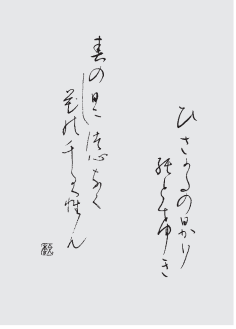 ひさかたのひかり
のとけき
春の日にしつ心なく
花のちるらん